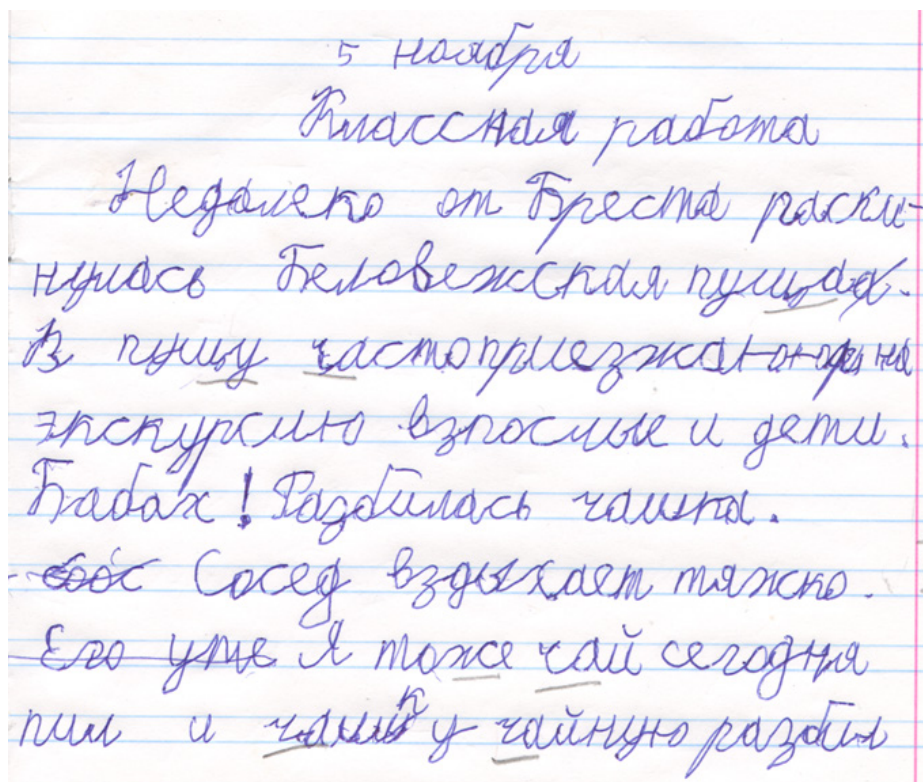 5 ноября
Классная работа
Недалеко от Бреста раски-
нулась Беловежская пуща.
В пущу часто приезжают на
экскурсию взрослые и дети.
Бабах! Разбилась чашка.
Сосед вздыхает тяжко.
Его уже Я тоже чай сегодня
пил и чашку чайную разбил